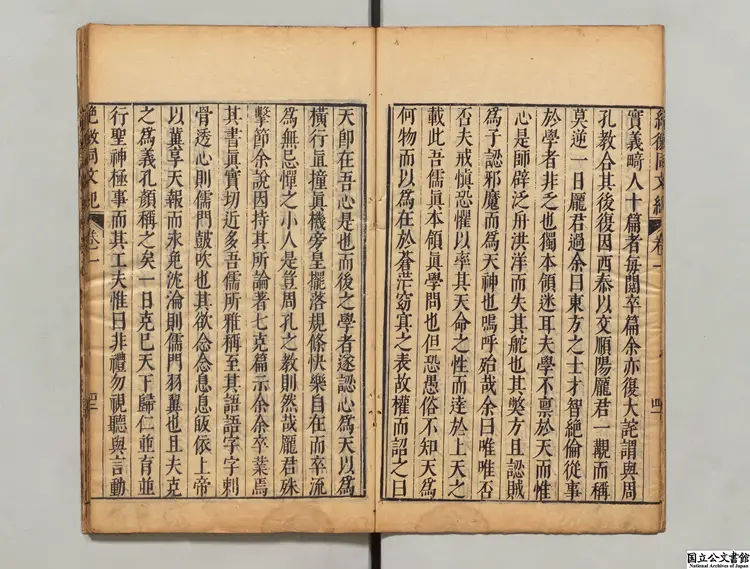 絕徼同文紀 卷一
實義畸人十篇者每閱卒篇余亦復大詫謂與周
孔敎合其後復因西泰以交順陽龐君一覿而稱
莫逆一日龐君過余曰東方之士才智絶倫從事
於學者非乏也獨本領迷耳夫學不禀於天而惟
心是師辟泛舟洪洋而失其舵也其獘方且認賊
爲子認邪魔而爲天神也嗚呼殆哉余曰唯唯否
否夫戒愼恐懼以率其天命之性而達於上天之
載此吾儒眞本領眞學問也但恐愚俗不知天爲
何物而以爲在於蒼茫窈冥之表故權而詔之曰
天卽在吾心是也而後之學者遂認心爲天以爲
橫行直撞眞機旁皇擺落規條快樂自在而卒流
爲無忌憚之小人是豈周孔之敎則然哉龐君殊
擊節余說因持其所論著七克篇示余余卒業焉
其書眞實切近多吾儒所雅稱至其語語字字刺
骨透心則儒門皷吹也其欲念念息息皈依上帝
以冀享天報而永免沈淪則儒門羽翼也且夫克
之爲義孔顏稱之矣一日克己天下歸仁並育並
行聖神極事而其工夫惟曰非禮勿視聽與言動
絶徼同文紀 卷一
国立公文書館
National Archives of Japan